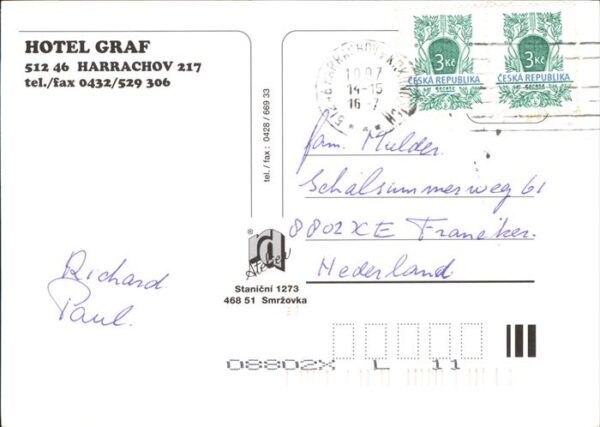 HOTEL GRAF
512 46 HARRACHOV 217
tel./fax 0432/529 306
3 Kč
ČESKÁ REPUBLIKA
3 Kč
ČESKÁ REPUBLIKA
HARRACHOV
1997
14-15
16-7
tel./fax: 0428 / 669 33
fam. Mulder.
Schalsummerweg 61
8802XE Franeker.
Nederland
Richard
Paul.
®
d
Atelier
Staniční 1273
468 51 Smržovka
08802X L 11